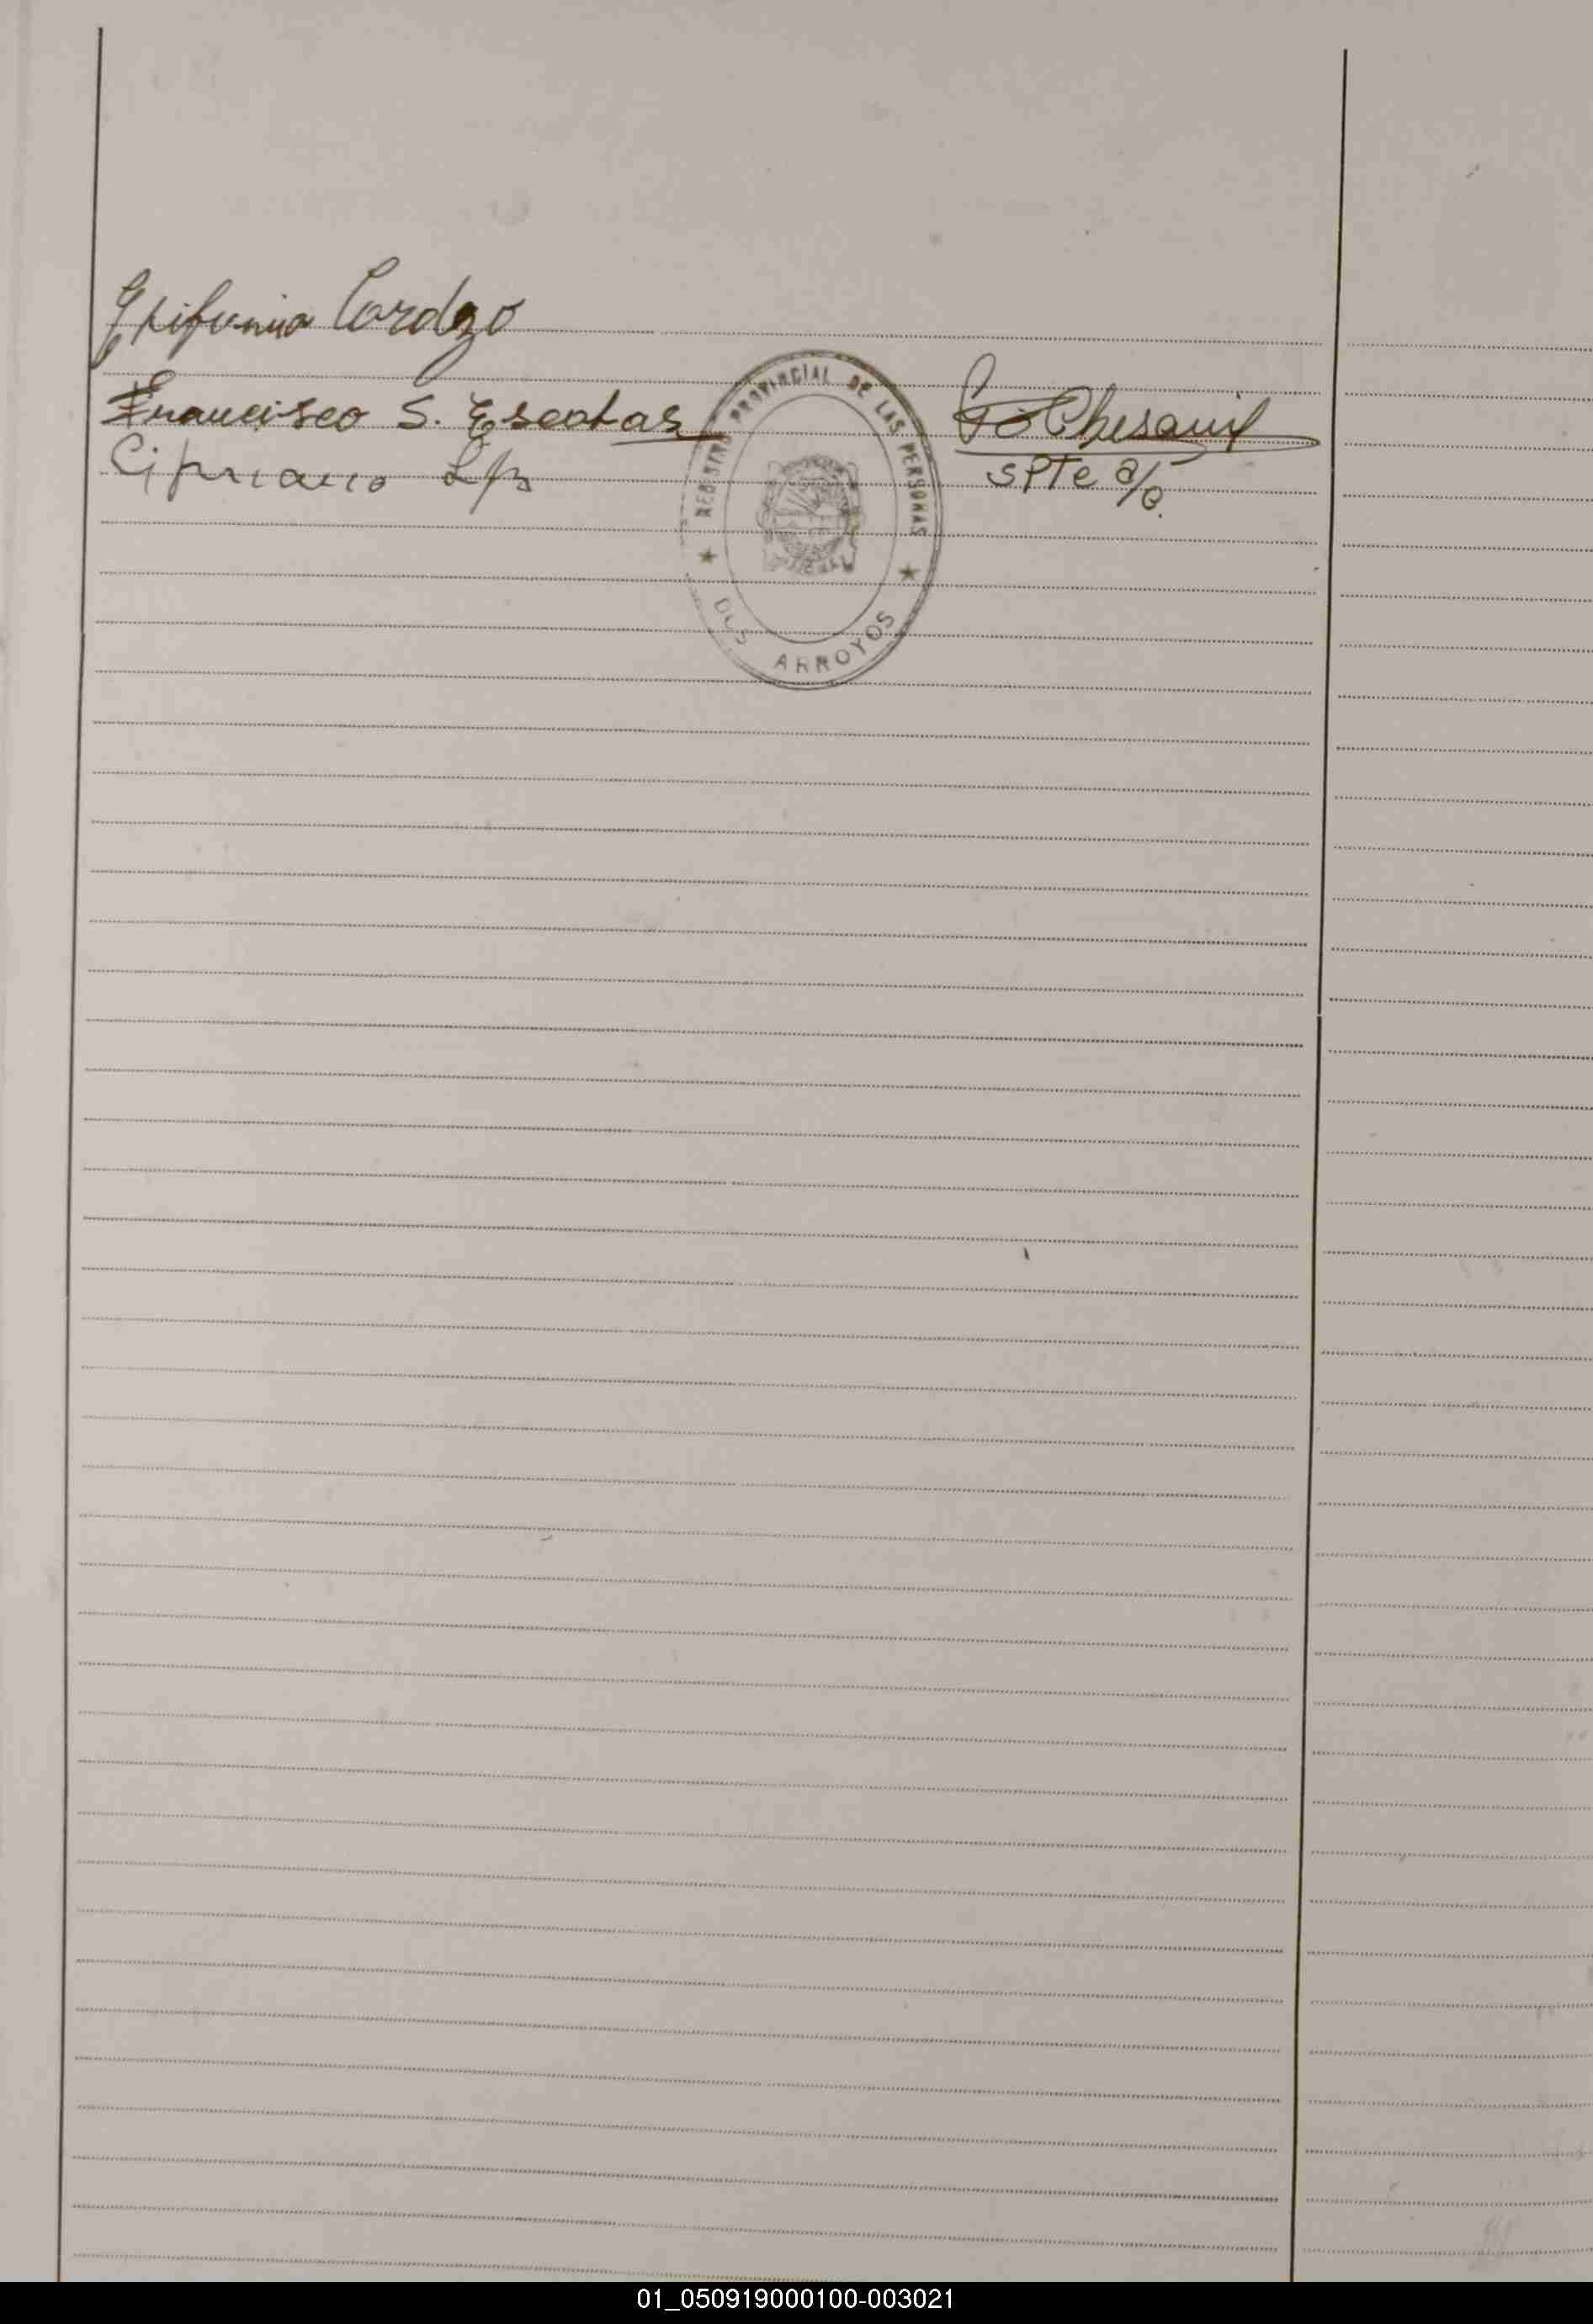 Epifania Cardozo
Francisco S. Escobar
Cipriano
REGISTRO PROVINCIAL DE LAS PERSONAS
DOS ARROYOS
SPTe a/c.
01_050919000100-003021